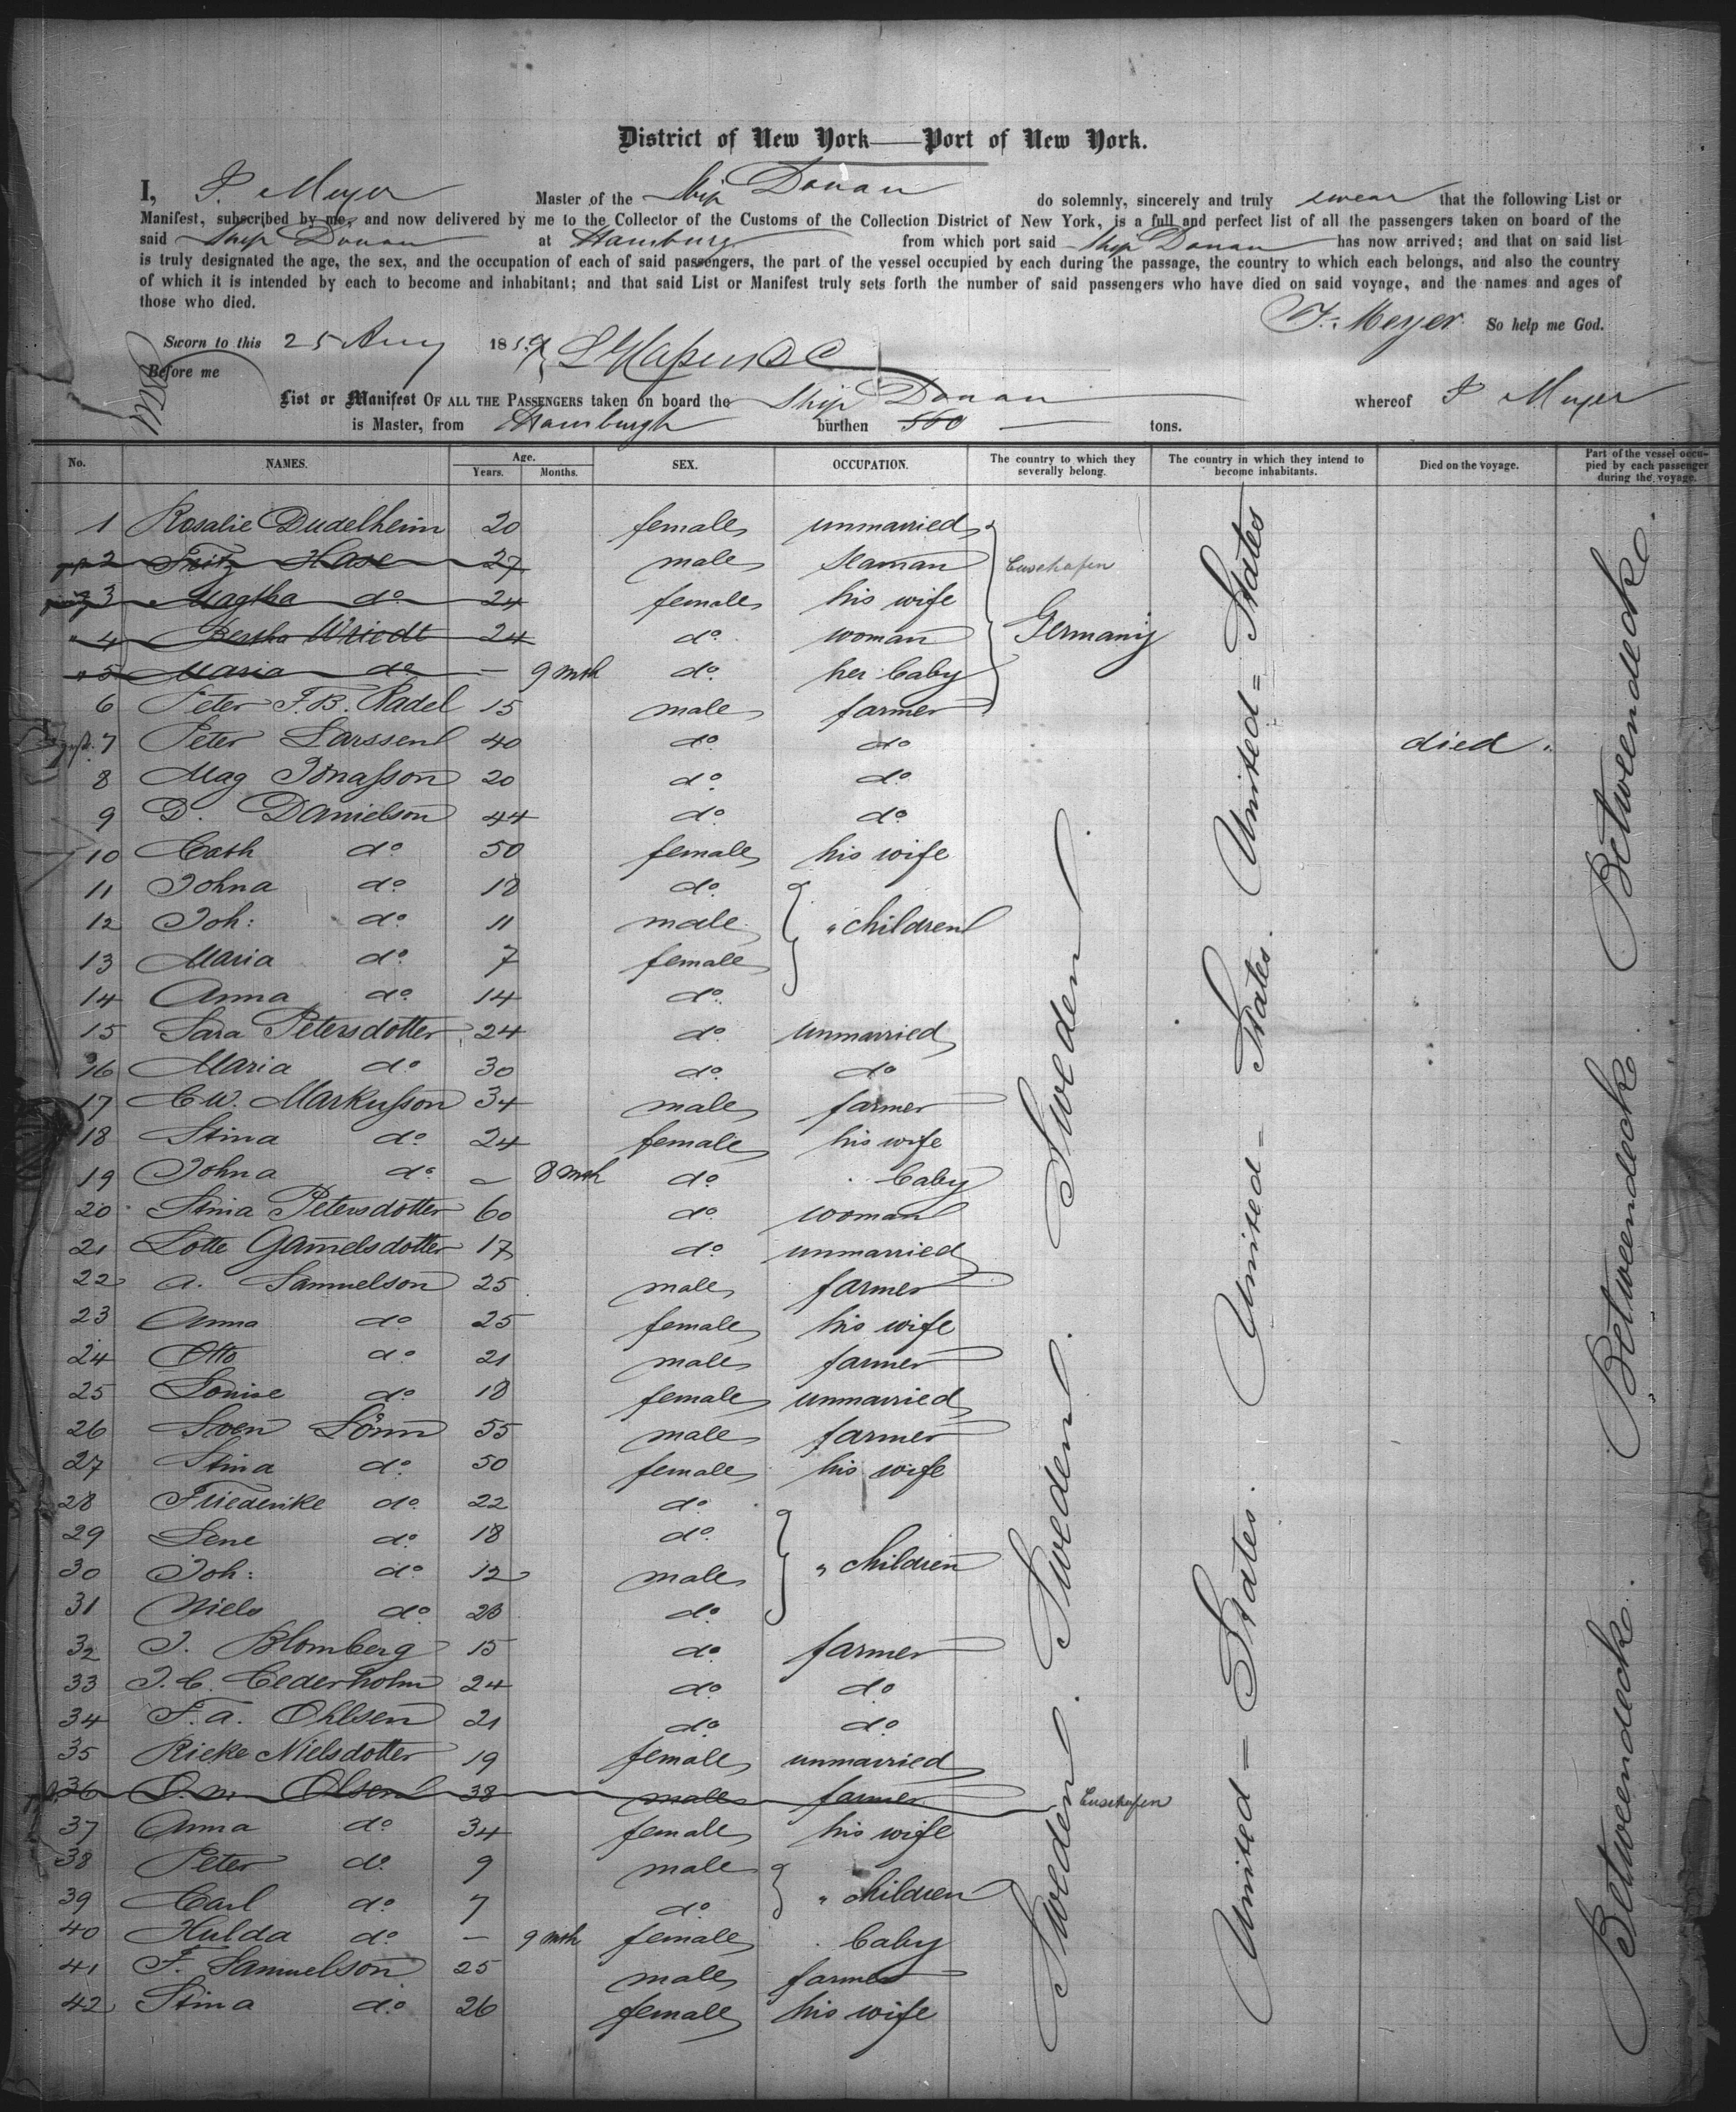 District of New York — Port of New York.
I, J. Meyer Master of the Ship Donau do solemnly, sincerely and truly swear that the following List or
Manifest, subscribed by me, and now delivered by me to the Collector of the Customs of the Collection District of New York, is a full and perfect list of all the passengers taken on board of the
said Ship Donau at Hamburg from which port said Ship Donau has now arrived; and that on said list
is truly designated the age, the sex, and the occupation of each of said passengers, the part of the vessel occupied by each during the passage, the country to which each belongs, and also the country
of which it is intended by each to become and inhabitant; and that said List or Manifest truly sets forth the number of said passengers who have died on said voyage, and the names and ages of
those who died.
J. Meyer So help me God.
Sworn to this 25 Aug 1859
Before me
List or Manifest OF ALL THE PASSENGERS taken on board the Ship Donau whereof J Meyer
is Master, from Hamburgh burthen 560 tons.
No. NAMES. Age. Years. Months. SEX. OCCUPATION. The country to which they severally belong. The country in which they intend to become inhabitants. Died on the voyage. Part of the vessel occupied by each passenger during the voyage.
1 Rosalie Dudelheim 20 female unmarried
2 Fritz Hase 27 male seaman
3 Magtha do 24 female his wife
4 Bertha Wriedt 24 do. woman Germany
5 Maria do — 9 mth do. her baby
6 Peter F.B. Radel 15 male farmer
7 Peter Larssen 40 do. do died.
8 Mag Jonasson 20 do. do.
9 D. Danielson 44 do. do.
10 Cath do. 50 female his wife
11 Johna do. 18 do.
12 Joh: do. 11 male " children
13 Maria do. 7 female
14 Anna do. 14 do.
15 Sara Petersdotter 24 do. unmarried
16 Maria do. 30 do. do
17 C.W. Markusson 34 male farmer
18 Stina do. 24 female his wife
19 Johna do. — 8 mth do. baby
20 Stina Petersdotter 60 do. woman
21 Lotte Gamelsdotter 17 do. unmarried
22 A. Samuelson 25 male farmer
23 Anna do. 25 female his wife
24 Otto do. 21 male farmer
25 Louise do. 18 female unmarried
26 Sven Lönn 55 male farmer
27 Stina do. 50 female his wife
28 Friederike do. 22 do.
29 Lene do. 18 do.
30 Joh: do. 12 male " children
31 Niels do. 28 do.
32 J. Blomberg 15 do. farmer
33 J.C. Cederholm 24 do. do.
34 F.A. Ohlsen 21 do. do.
35 Rieke Nielsdotter 19 female unmarried
36 Olsen 38 male farmer
37 Anna do. 34 female his wife
38 Peter do. 9 male
39 Carl do. 7 do. " children
40 Hulda do. — 9 mth female baby
41 F. Samuelson 25 male farmer
42 Stina do. 26 female his wife
Sweden. Sweden. Sweden. Sweden.
United = States United = States. United = States.
Betweendecke. Betweendecke. Betweendecke.